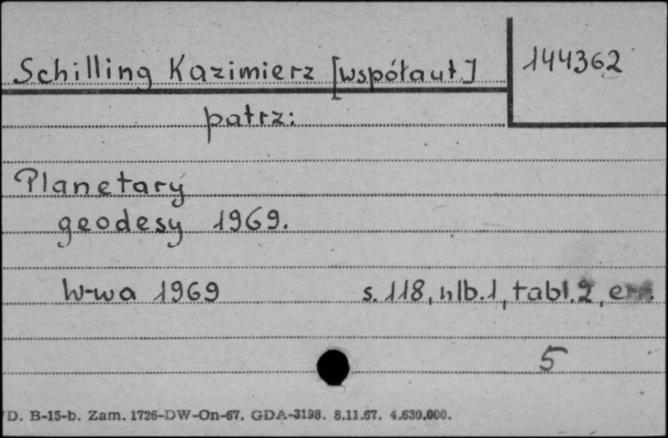 Schilling Kazimierz [współaut.] 144362
patrz:
Planetary
geodesy 1969.
W-wa 1969 s. 118, nlb. 1, tabl. 2,
5
D. B-15-b. Zam. 1726-DW-On-67. GDA-3198. 8.11.67. 4.630.000.